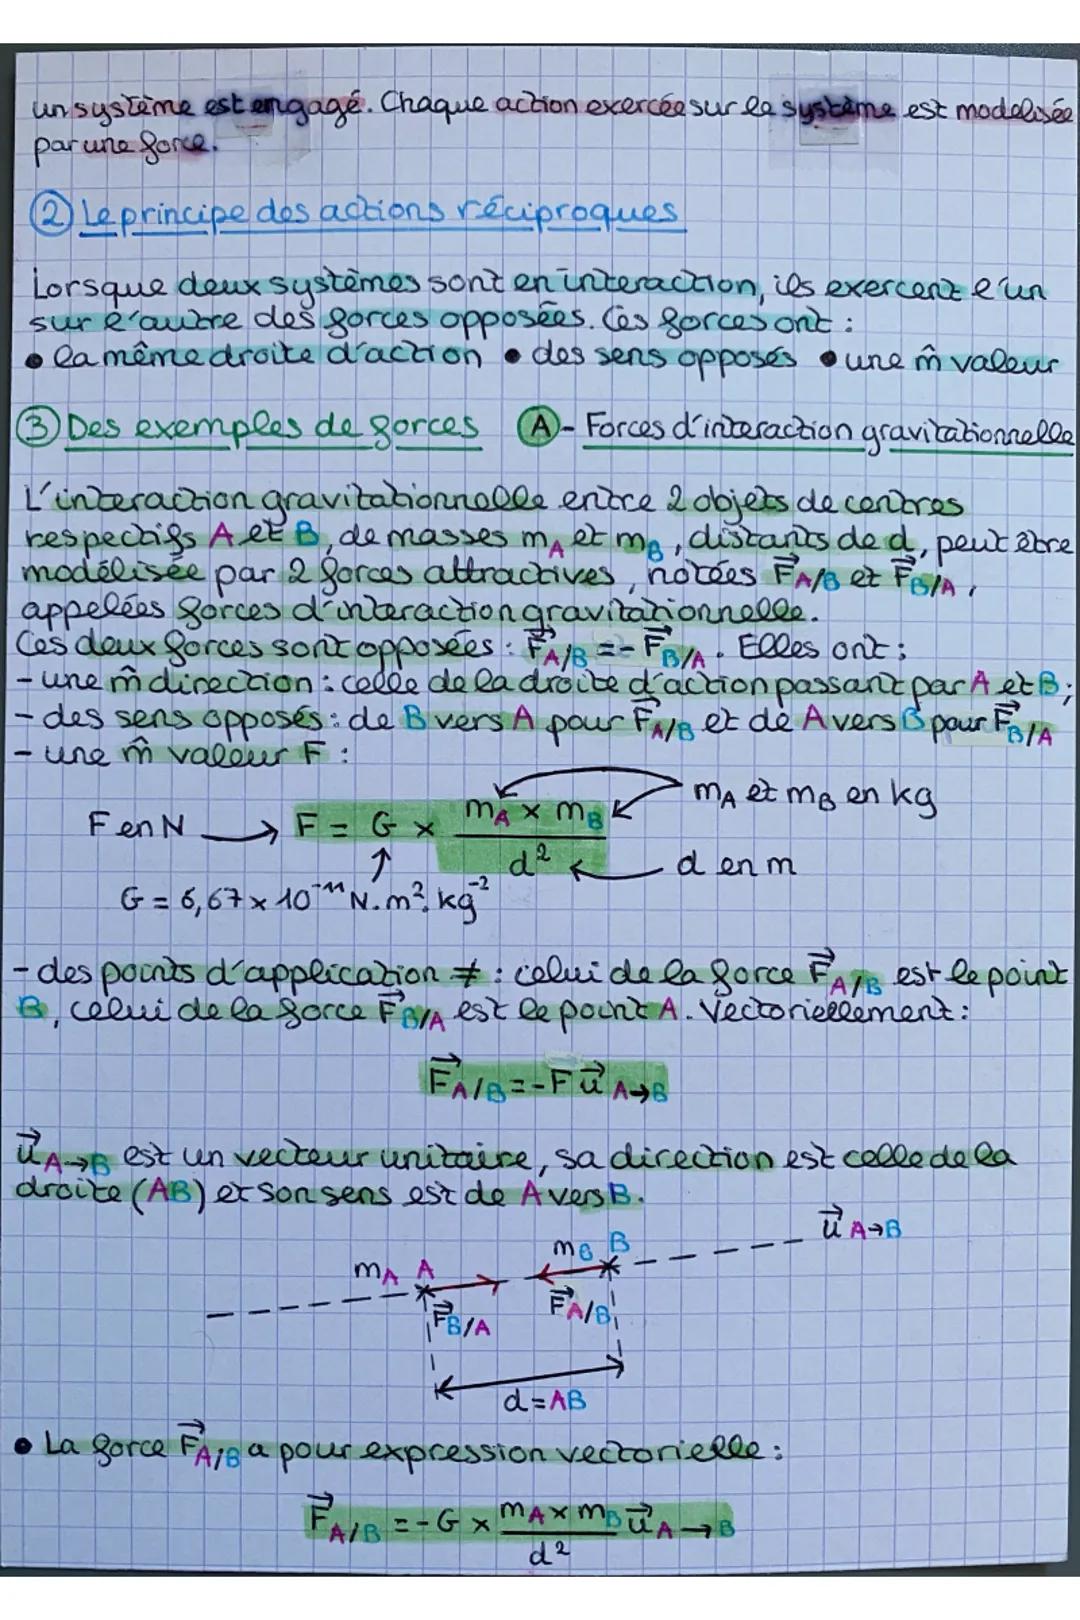 un système est engagé. Chaque action exercée sur le système est modelisée
par une force.
② Le principe des actions réciproques
Lorsque deux systèmes sont en interaction, ils exercent l'un
sur l'autre des forces opposées. Ces forces ont :
• la même droite d'action • des sens opposés • une m̂ valeur
③ Des exemples de forces Ⓐ - Forces d'interaction gravitationnelle
L'interaction gravitationnelle entre 2 objets de centres
respectifs A et B, de masses mA et mB, distants de d, peut être
modélisée par 2 forces attractives, notées F⃗A/B et F⃗B/A,
appelées forces d'interaction gravitationnelle.
Ces deux forces sont opposées : F⃗A/B = - F⃗B/A. Elles ont :
- une m̂ direction : celle de la droite d'action passant par A et B ;
- des sens opposés : de B vers A pour F⃗A/B et de A vers B pour F⃗B/A
- une m̂ valeur F :
mA et mB en kg
F en N → F = G × (mA × mB) / d²
d en m
G = 6,67 × 10⁻¹¹ N.m².kg⁻²
- des points d'application ≠ : celui de la force F⃗A/B est le point
B, celui de la force F⃗B/A est le point A. Vectoriellement :
F⃗A/B = - F u⃗A→B
u⃗A→B est un vecteur unitaire, sa direction est celle de la
droite (AB) et son sens est de A vers B.
u⃗A→B
mB B
mA A
F⃗B/A F⃗A/B
d = AB
• La force F⃗A/B a pour expression vectorielle :
F⃗A/B = - G × (mA × mB) / d² u⃗A→B